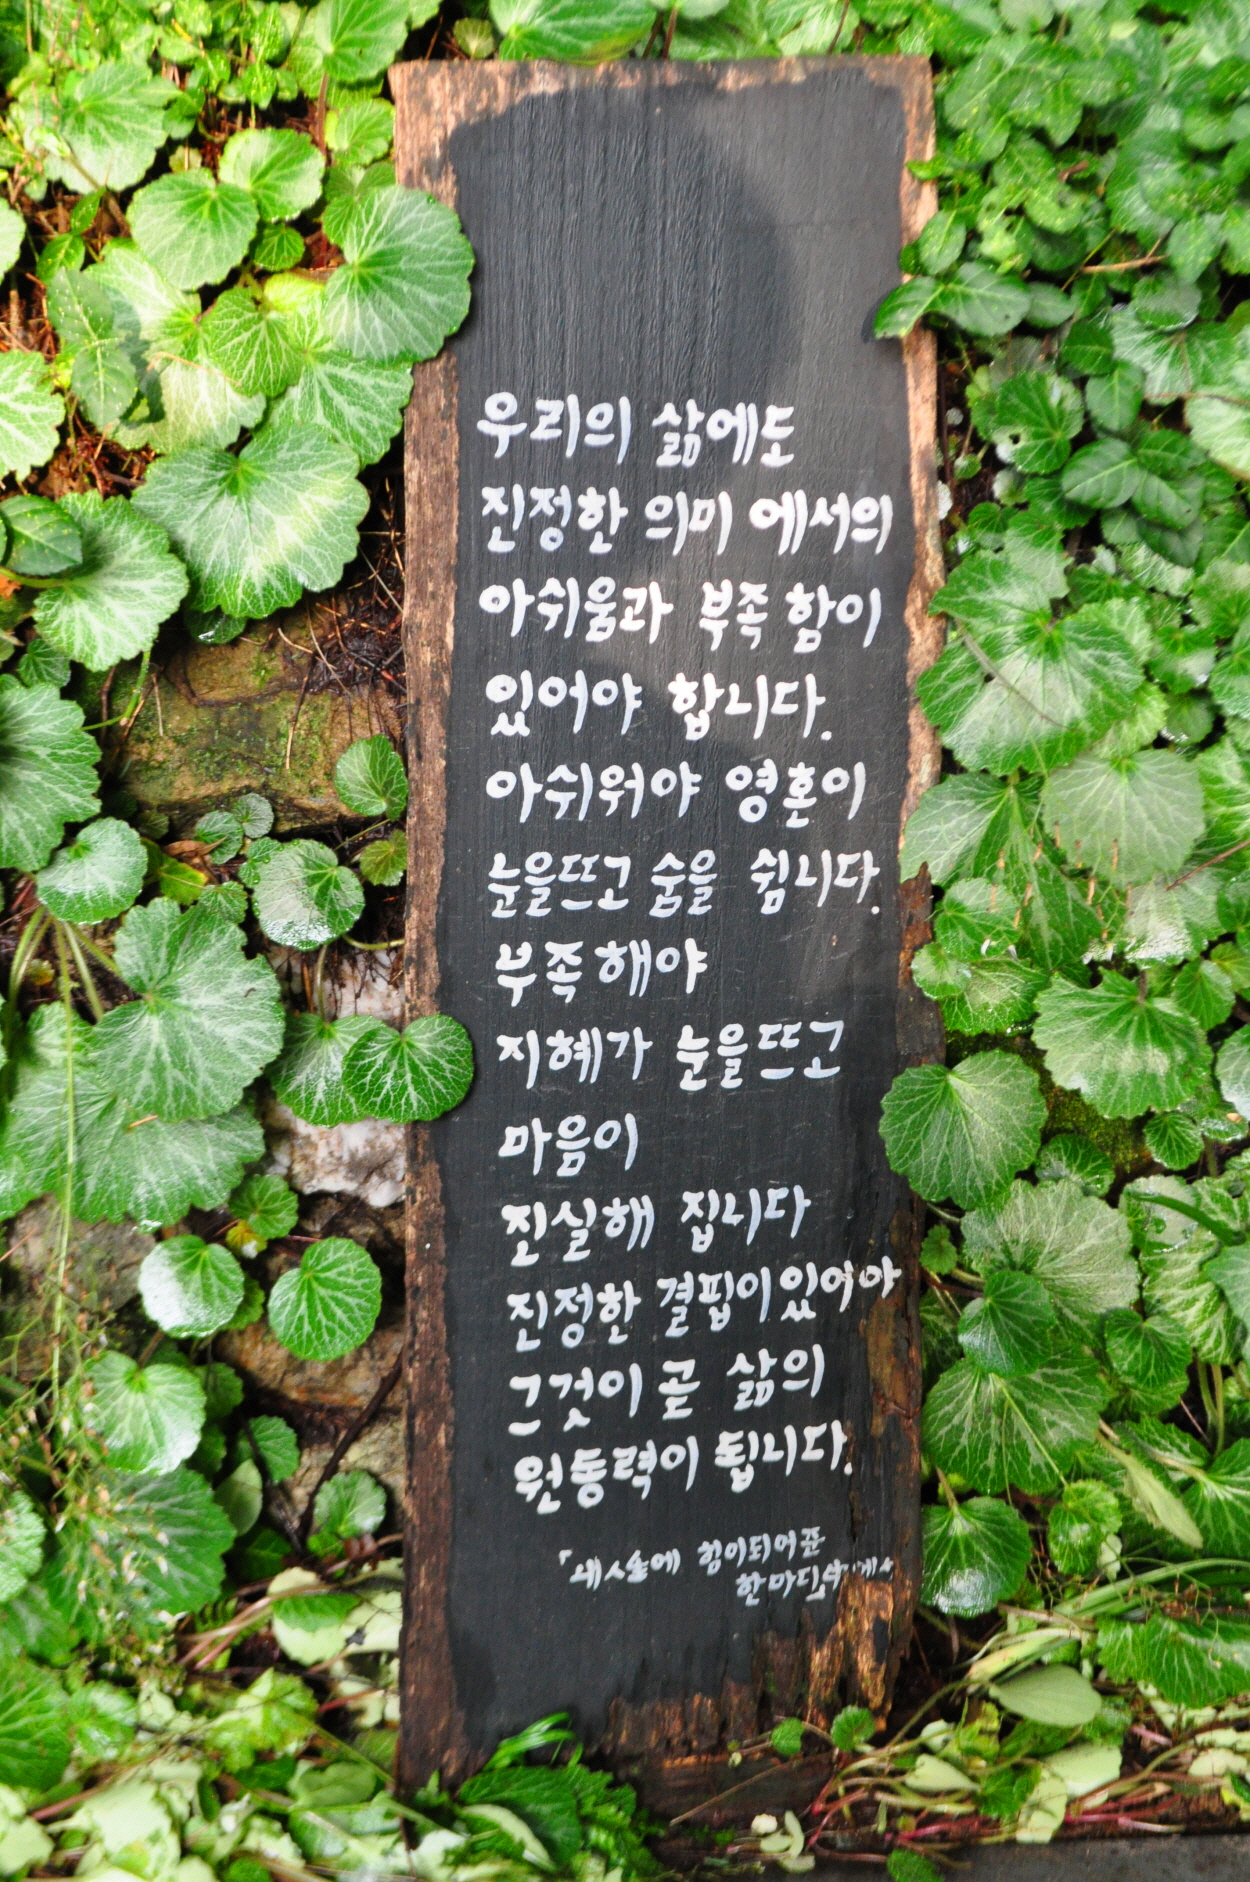 우리의 삶에도
진정한 의미 에서의
아쉬움과 부족함이
있어야 합니다.
아쉬워야 영혼이
눈을뜨고 숨을 쉽니다.
부족해야
지혜가 눈을뜨고
마음이
진실해 집니다
진정한 결핍이있어야
그것이 곧 삶의
원동력이 됩니다.
힘이되어준
한마디